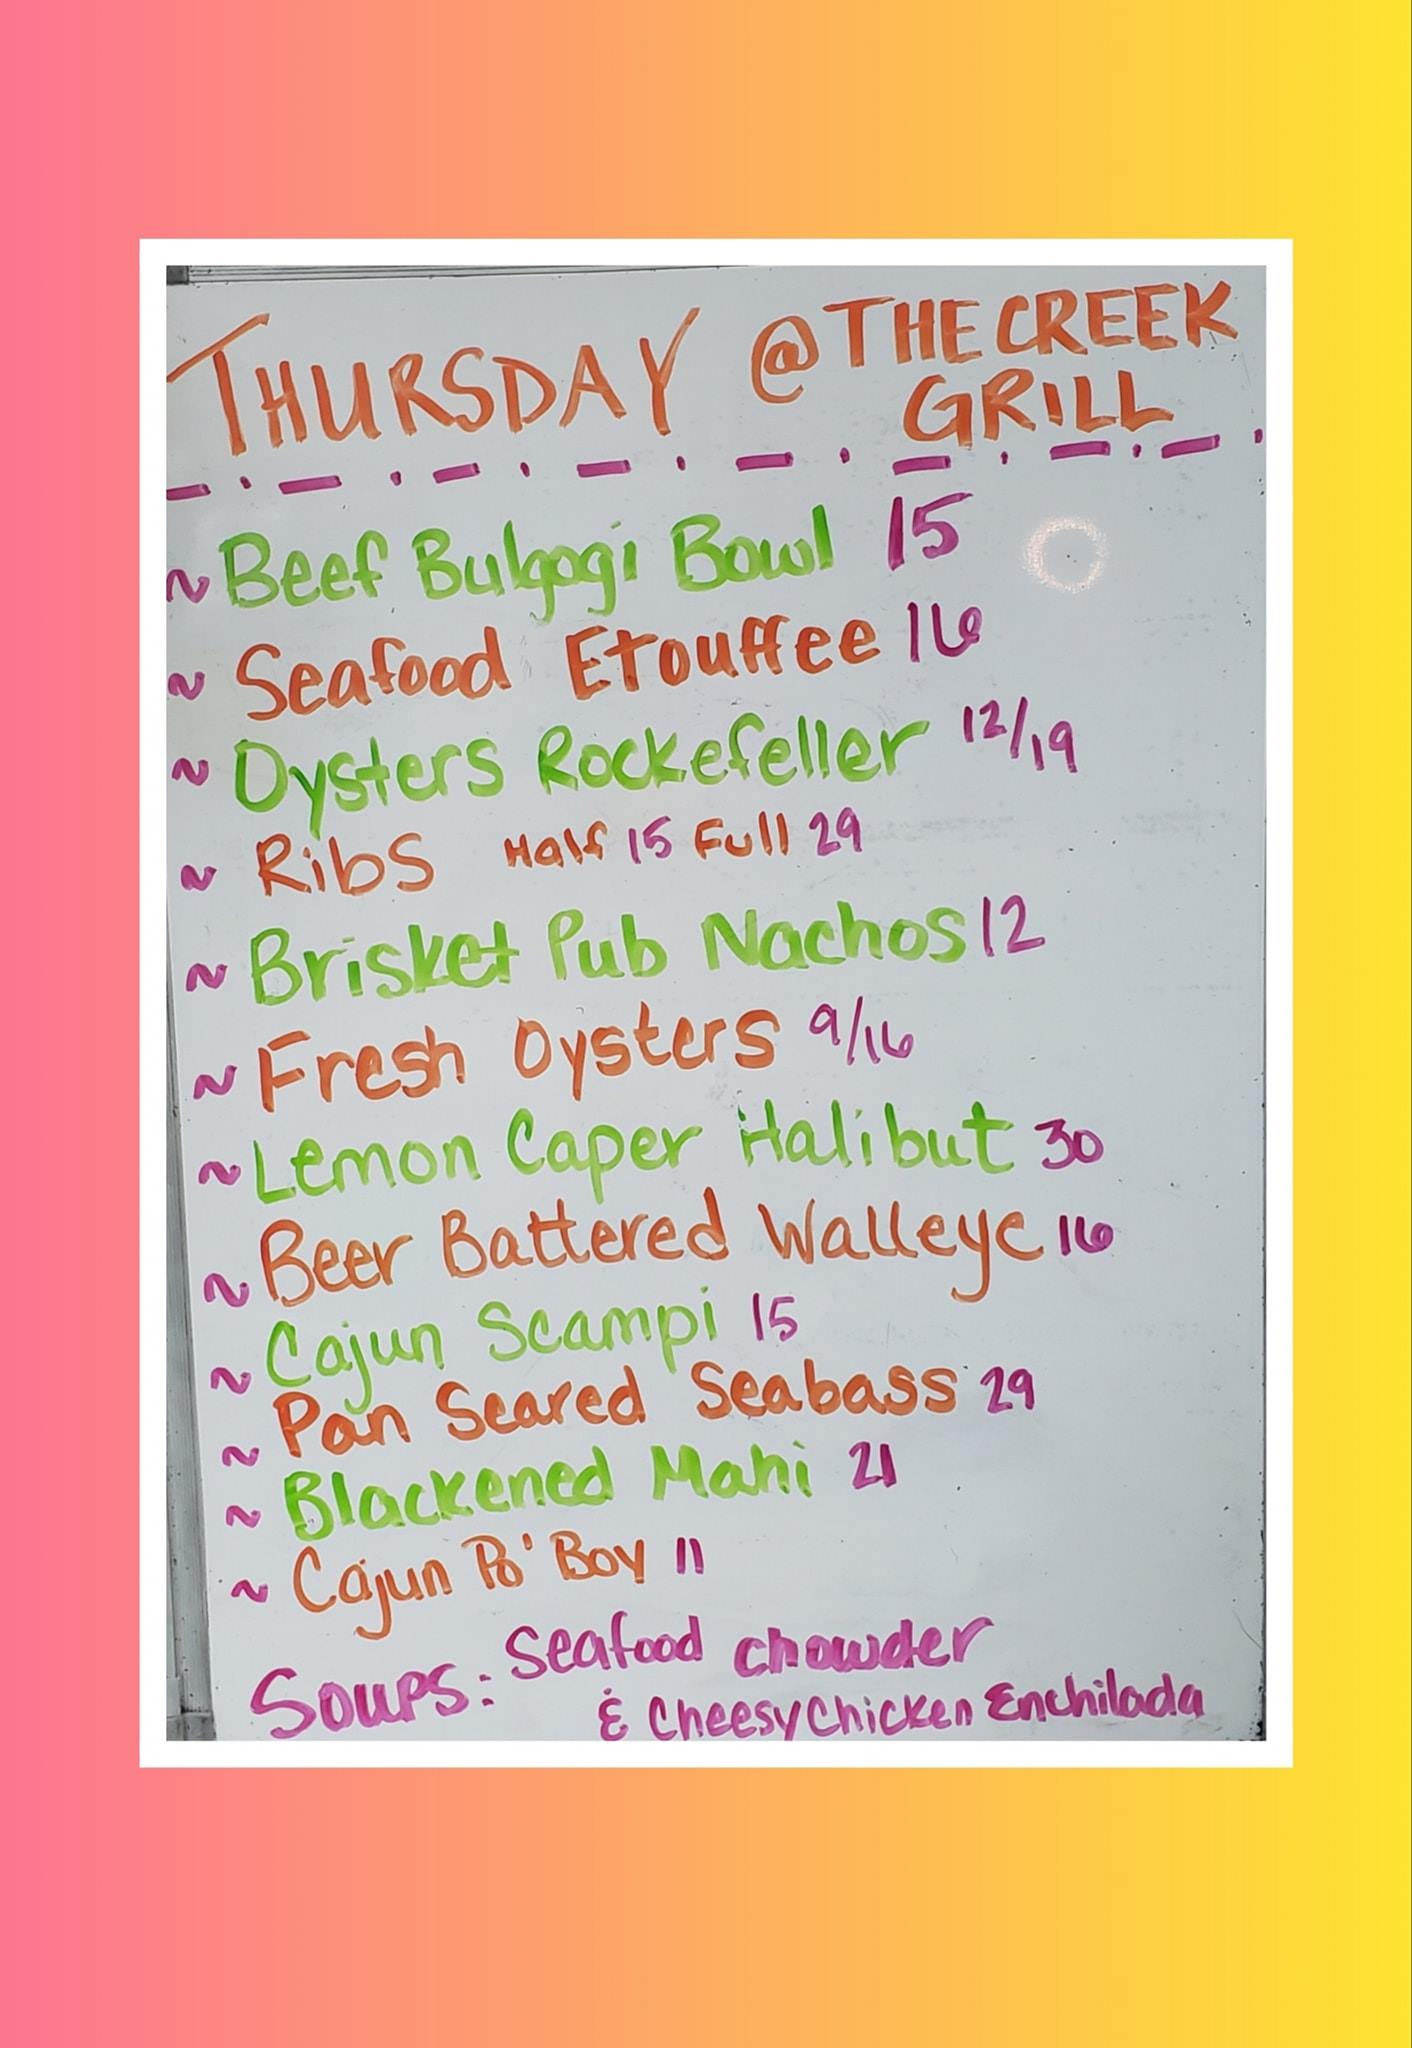 THURSDAY @ THE CREEK
GRILL
~ Beef Bulgogi Bowl 15
~ Seafood Etouffee 16
~ Oysters Rockefeller 12/19
~ Ribs Half 15 Full 29
~ Brisket Pub Nachos 12
~ Fresh Oysters 9/16
~ Lemon Caper Halibut 30
~ Beer Battered Walleye 16
~ Cajun Scampi 15
~ Pan Seared Seabass 29
~ Blackened Mahi 21
~ Cajun Po' Boy 11
Soups: Seafood chowder
& Cheesy Chicken Enchilada